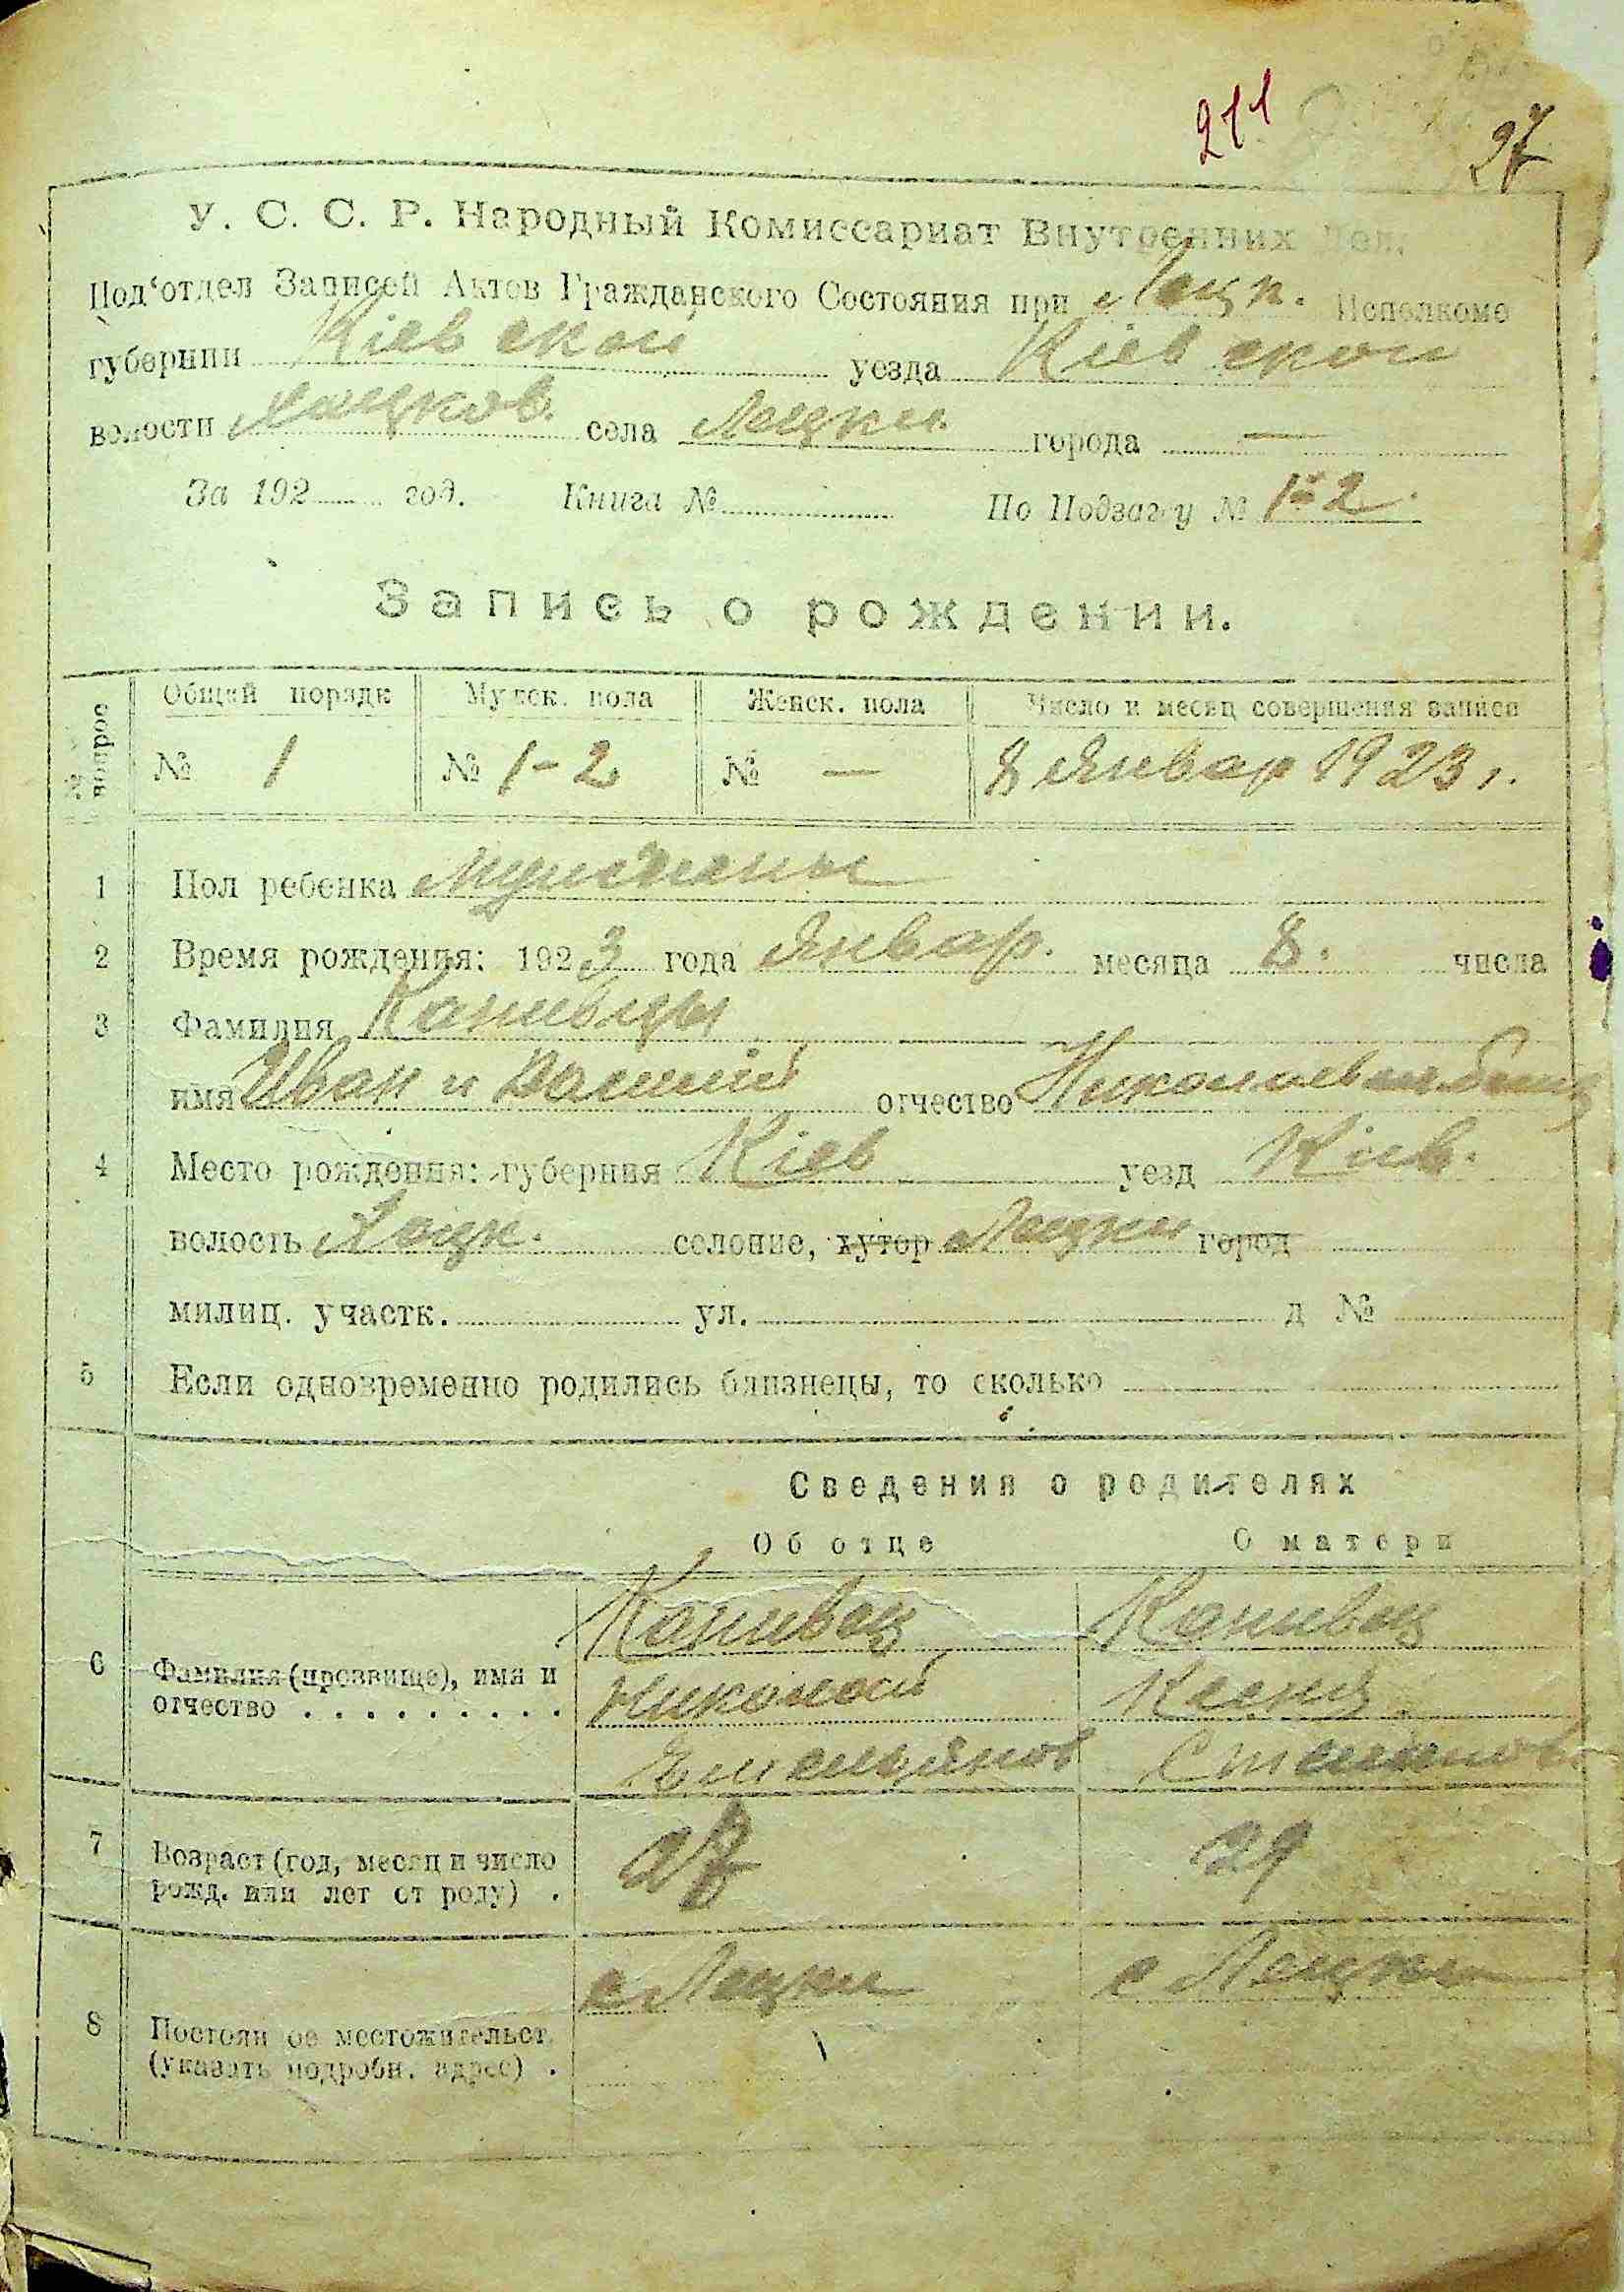 211
27
У. С. С. Р. Народный Комиссариат Внутренних Дел.
Под'отдел Записей Актов Гражданского Состояния при Исполкоме
губернии Кіевской уезда Кіевской
волости села города —
За 192 год. Книга № По Подзагу № 1-2
Запись о рождении.
№ вопрос Общей порядк Мужск. пола Женск. пола Число и месяц совершения записи
№ 1 № 1-2 № — 8 Январ 1923 г.
1 Пол ребенка
2 Время рождения: 1923 года Январ. месяца 8. числа
3 Фамилия Канивцы
имя Иван и отчество
4 Место рождения: губерния Кіев уезд Кіев.
волость селение, хутор город
милиц. участк. ул. д №
5 Если одновременно родились близнецы, то сколько
Сведения о родителях
Об отце О матери
Канивец Канивец
6 Фамилия (прозвище), имя и
отчество . . . . . . . . . Николай Ксения
Емельянов Степанов.
7 Возраст (год, месяц и число
рожд. или лет от роду) . 27 29
8 Постоян ое местожительст.
(указать подробн. адрес) .